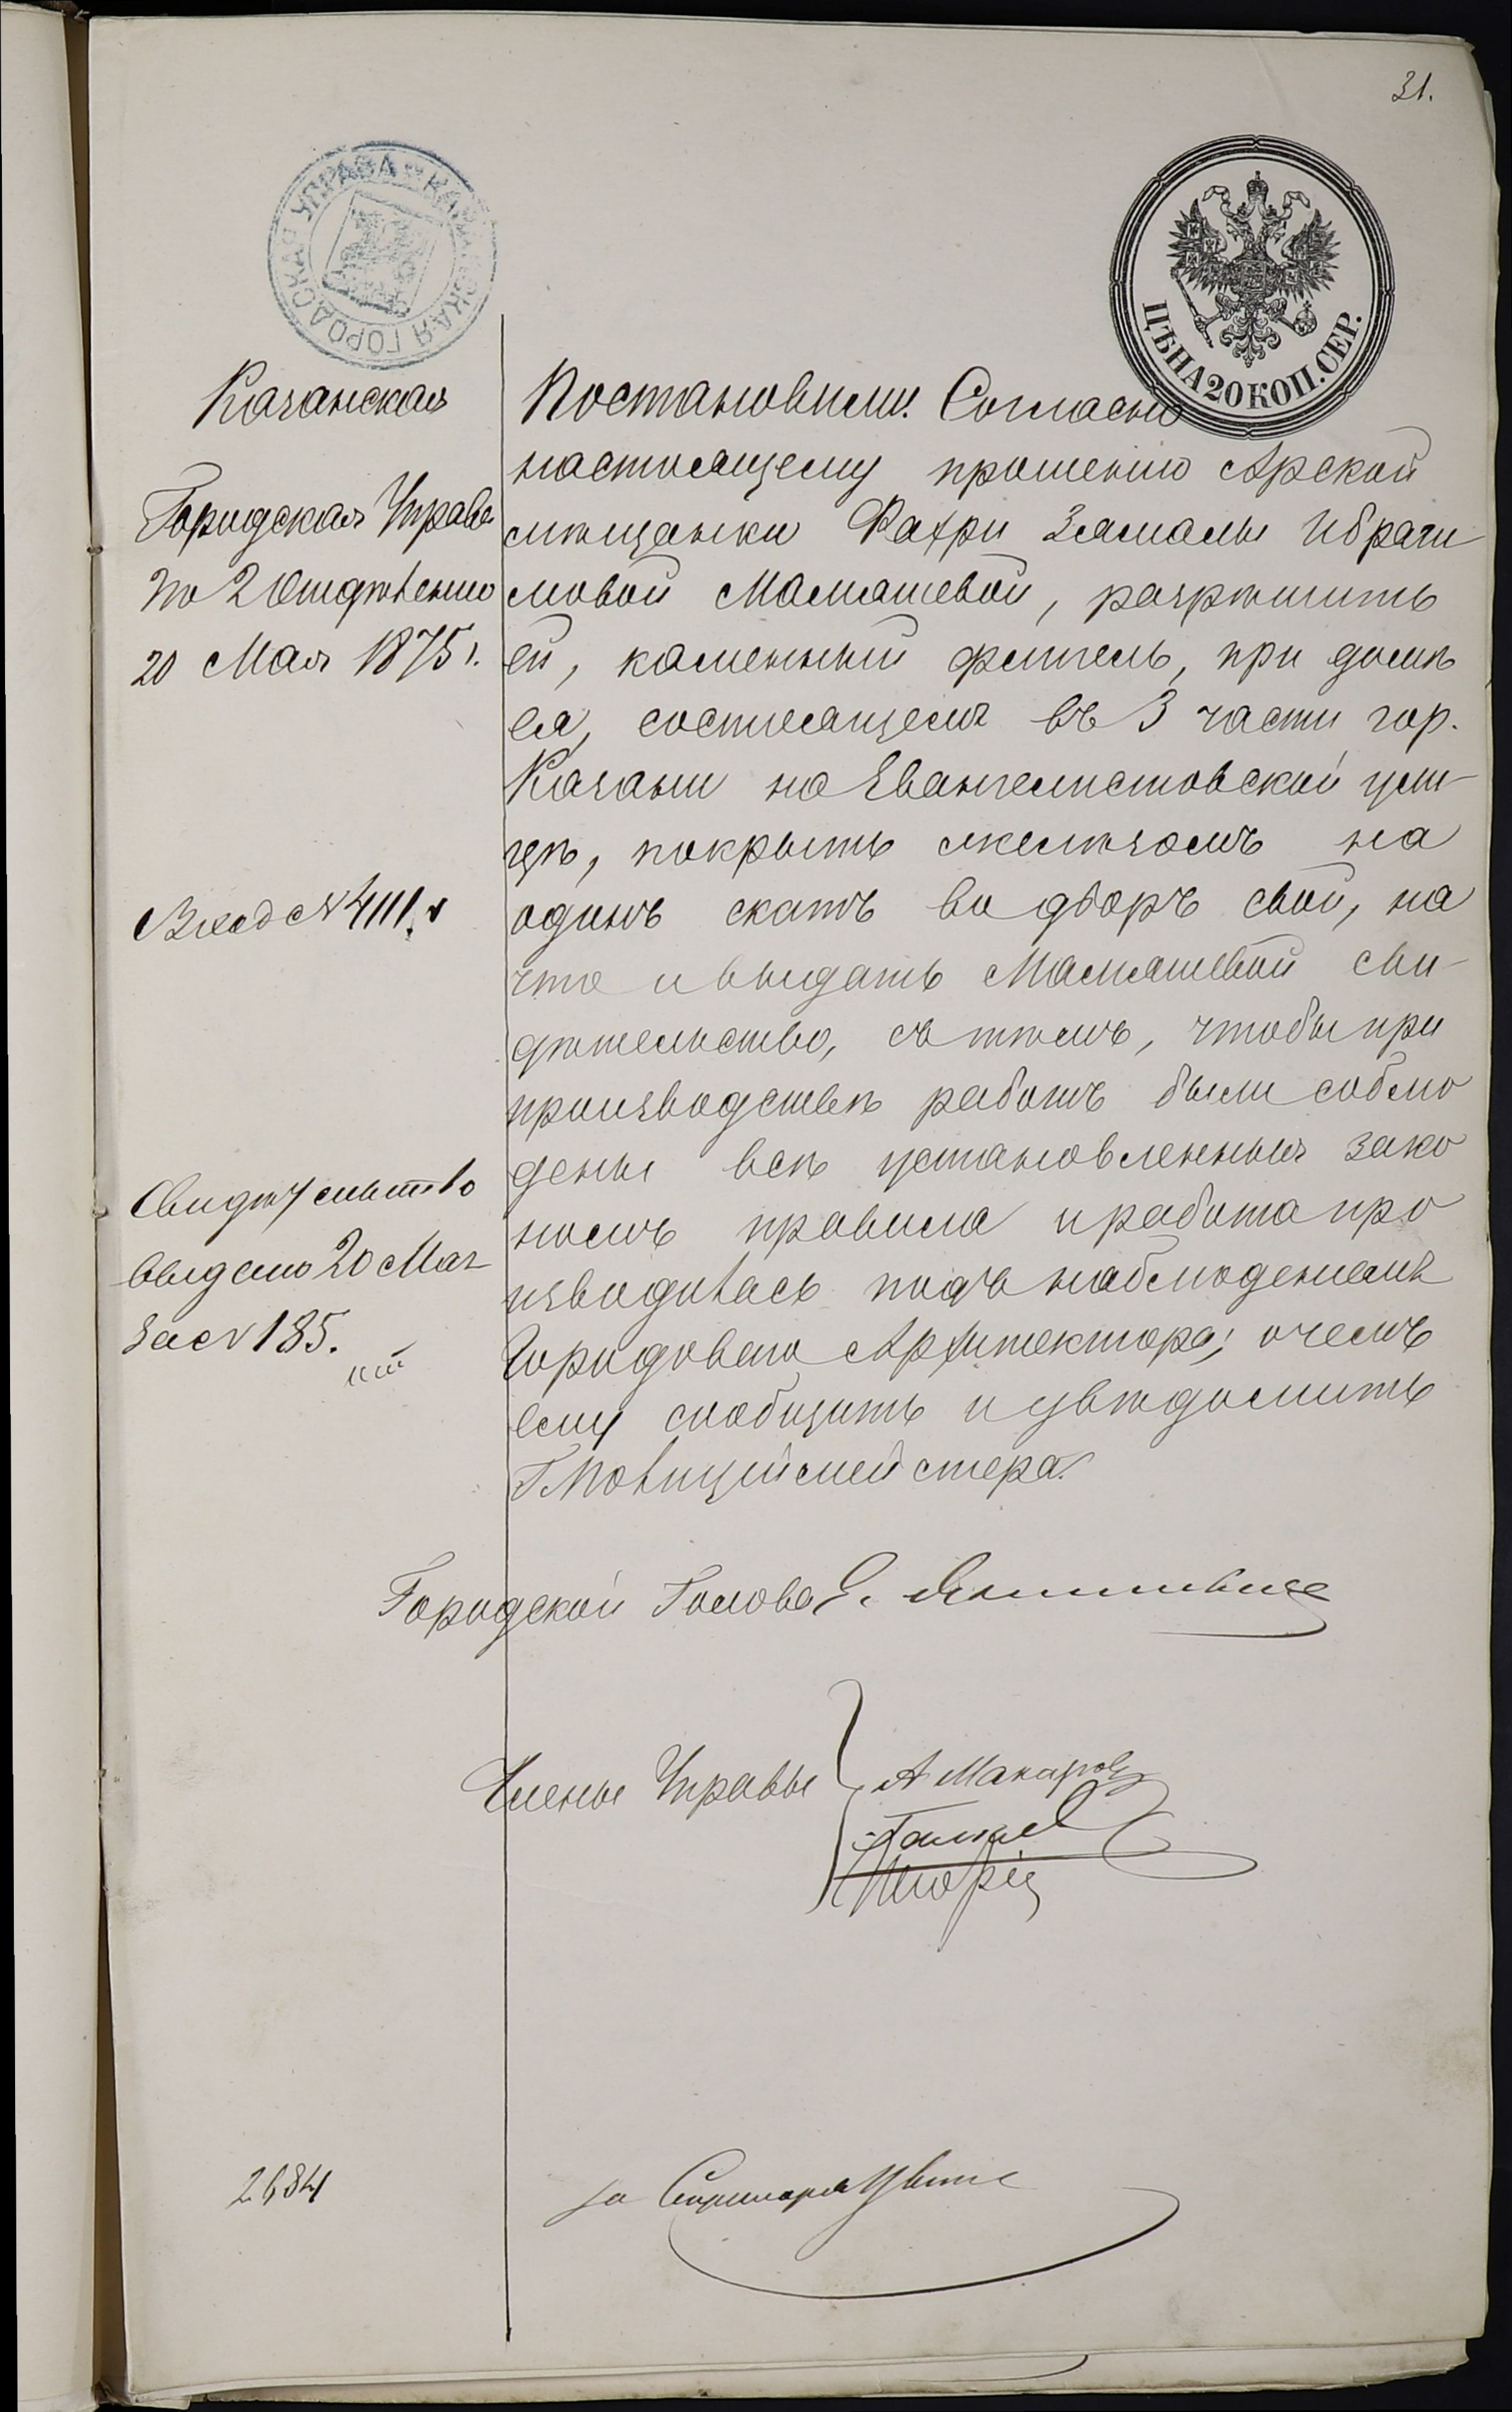 31.
КАЗАНСКАЯ ГОРОДСКАЯ УПРАВА
ЦѢНА 20 КОП. СЕР.
Казанская
Городская Управа
по 2 Отдѣленію
20 Мая 1875 г.
Вход № 4111.
Свидѣтельство
выдано 20 Мая
за № 185.
Постановили: Согласно
настоящему прошенію Арской
мѣщанки Фахри Замалы Ибраги-
мовой Мамашевой, разрѣшить
ей, каменный флигель, при домѣ
ея, состоящемъ въ 3 части гор.
Казани на Евангелистовской ули-
цѣ, покрыть желѣзомъ на
одинъ скатъ во дворъ свой, на
что и выдать Мамашевой сви-
дѣтельство, съ тѣмъ, чтобы при
производствѣ работъ были соблю
дены всѣ установленныя зако
номъ правила и работа про
изводилась подъ наблюденіемъ
Городоваго Архитектора; о чемъ
ему сообщить и увѣдомить
Г. Полицiймейстера.
Городской Голова Е.
Члены Управы
А Макаров
за Секретаря
2684